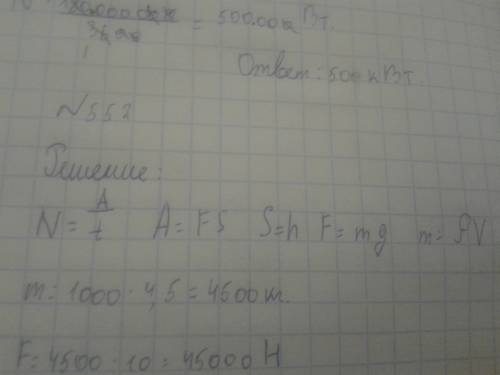 = 500.000 Вт.
Ответ: 500 кВт.
N 552
Решение:
N = A/t A = FS S=h F = mg m = ρV
m = 1000 · 4,5 = 4500 кг.
F = 4500 · 10 = 45000 Н